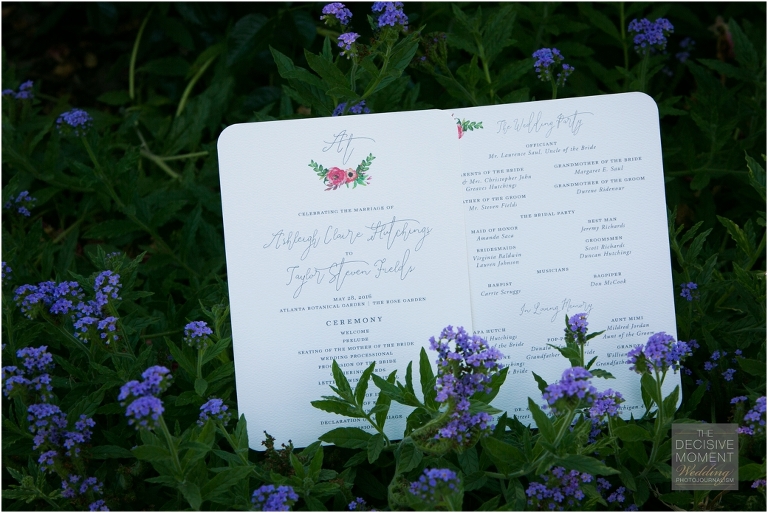 At
CELEBRATING THE MARRIAGE OF
Ashleigh Claire Hutchings
TO
Taylor Steven Fields
MAY 28, 2016
ATLANTA BOTANICAL GARDEN | THE ROSE GARDEN
CEREMONY
WELCOME
PRELUDE
SEATING OF THE MOTHER OF THE BRIDE
WEDDING PROCESSIONAL
OF THE BRIDE
DECLARATION
MARRIAGE
The Wedding Party
OFFICIANT
Mr. Laurence Saul, Uncle of the Bride
RENTS OF THE BRIDE
& Mrs. Christopher John
Greaves Hutchings
THER OF THE GROOM
Mr. Steven Fields
GRANDMOTHER OF THE BRIDE
Margaret E. Saul
GRANDMOTHER OF THE GROOM
Dwetue Ridenour
THE BRIDAL PARTY
MAID OF HONOR
Amanda Saca
BRIDESMAIDS
Virginia Baldwin
Lauren Johnson
BEST MAN
Jeremy Richards
GROOMSMEN
Scott Richards
Duncan Hutchings
MUSICIANS
HARPIST
Carrie Scruggs
BAGPIPER
Don McCook
In Loving Memory
PA HUTCH
Grandfather
POP
Donald
Grandfather
AUNT MIMI
Mildred Jordan
Aunt of the Groom
GRAN
William
Grandfather
THE
DECISIVE
MOMENT
Wedding
PHOTOJOURNALISM